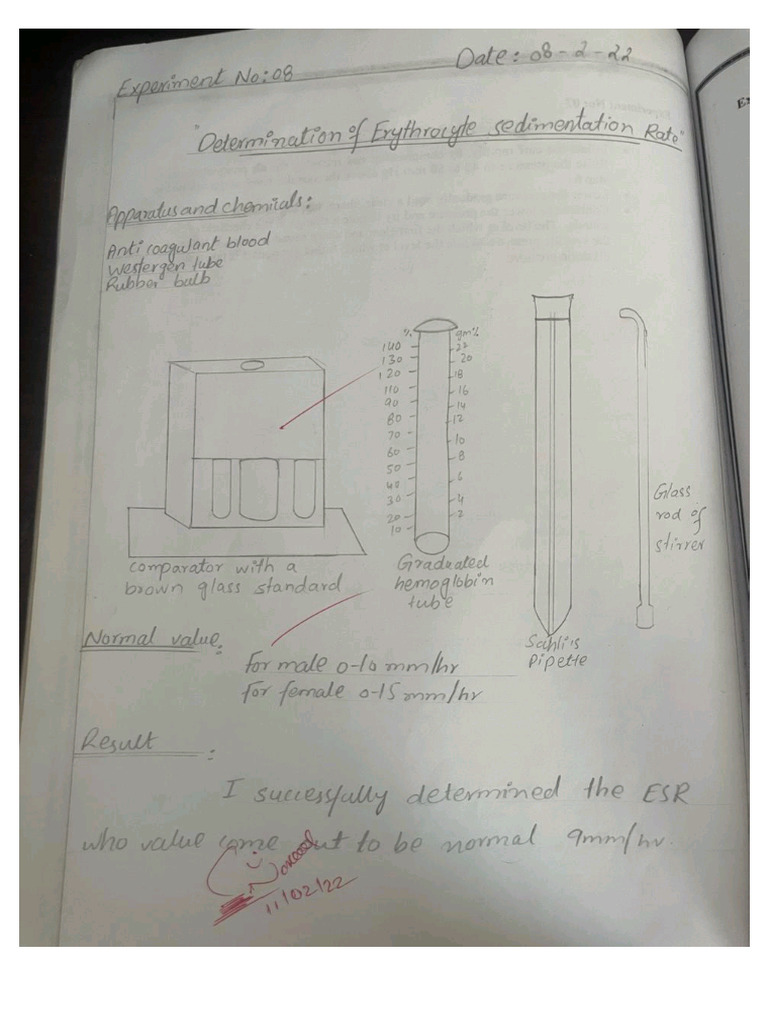 Experiment No: 08
Date: 08-2-22
"Determination of Erythrocyte sedimentation Rate"
Apparatus and chemicals:
Anti coagulant blood
Westergen tube
Rubber bulb
% gm%
140 22
130 20
120 18
110 16
90 14
80 12
70 10
60 8
50
40 6
30 4
20 2
10
comparator with a
brown glass standard
Graduated
hemoglobin
tube
Sahli's
Pipette
Glass
rod of
stirrer
Normal value:
for male 0-10 mm/hr
for female 0-15 mm/hr
Result:
I successfully determined the ESR
who value come out to be normal 9mm/hr.
11/02/22